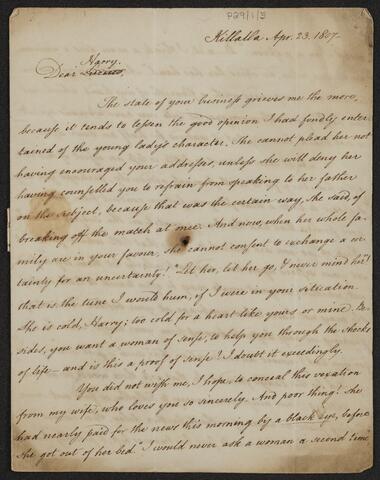 P29/1/3
Killalla Apr. 23. 1807.
Harry.
Dear
The state of your business grieves me the more,
because it tends to lessen the good opinion I had fondly enter
tained of the young lady's character. She cannot plead her not
having encouraged your addresses, unless she will deny her
having counselled you to refrain from speaking to her father
on the subject, because that was the certain way, she said, of
breaking off the match at once. And now, when her whole fa-
mily are in your favour, she cannot consent to exchange a cer
tainty for an uncertainty! "Let her, let her go, & never mind her,"
that is the tune I would hum, if I were in your situation.
She is cold, Harry; too cold for a heart like yours or mine. Be-
sides, you want a woman of sense, to help you through the shocks
of life – and is this a proof of sense? I doubt it exceedingly.
You did not wish me, I hope, to conceal this vexation
from my wife, who loves you so sincerely. And poor thing! she
had nearly paid for the news this morning by a black eye, before
she got out of her bed. "I would never ask a woman a second time"